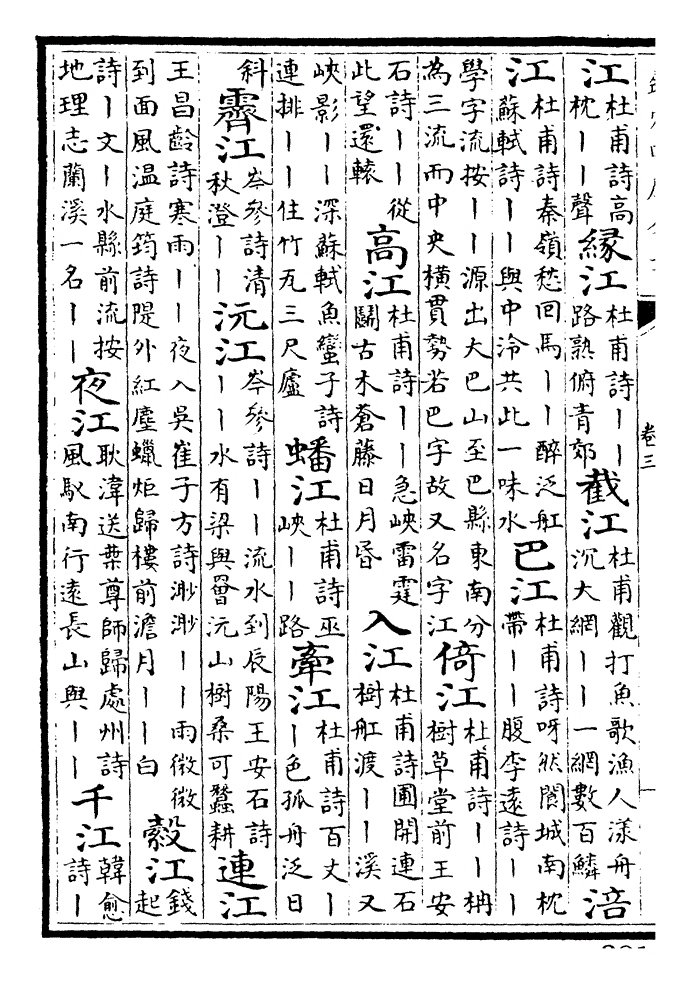 江
杜甫詩高
枕丨丨聲
緣江
杜甫詩丨丨
路熟俯青郊
截江
杜甫觀打魚歌漁人漾舟
沉大網丨丨一網數百鱗
涪
江
杜甫詩秦嶺愁回馬丨丨醉泛舡
蘇軾詩丨丨與中泠共此一味水
巴江
杜甫詩呀然閬城南枕
帶丨丨腹李遠詩丨丨
學字流按丨丨源出大巴山至巴縣東南分
為三流而中央橫貫勢若巴字故又名字江
倚江
杜甫詩丨丨柟
樹草堂前王安
石詩丨丨從
此望還轅
高江
杜甫詩丨丨急峽雷霆
鬭古木蒼藤日月昏
入江
杜甫詩圃開連石
樹舡渡丨丨溪又
峽影丨丨深蘇軾魚蠻子詩
連排丨丨住竹瓦三尺廬
蟠江
杜甫詩巫
峽丨丨路
牽江
杜甫詩百丈丨
丨色孤舟泛日
斜
霽江
岑參詩清
秋澄丨丨
沅江
岑參詩丨丨流水到辰陽王安石詩
丨丨水有梁與罾沅山樹桑可蠶耕
連江
王昌齡詩寒雨丨丨夜入吳崔子方詩渺渺丨丨雨微微
到面風温庭筠詩隄外紅塵蠟炬歸樓前澹月丨丨白
縠江
錢
起
詩丨文丨水縣前流按
地理志蘭溪一名丨丨
夜江
耿湋送葉尊師歸處州詩
風馭南行遠長山與丨丨
千江
韓愈
詩丨
卷三